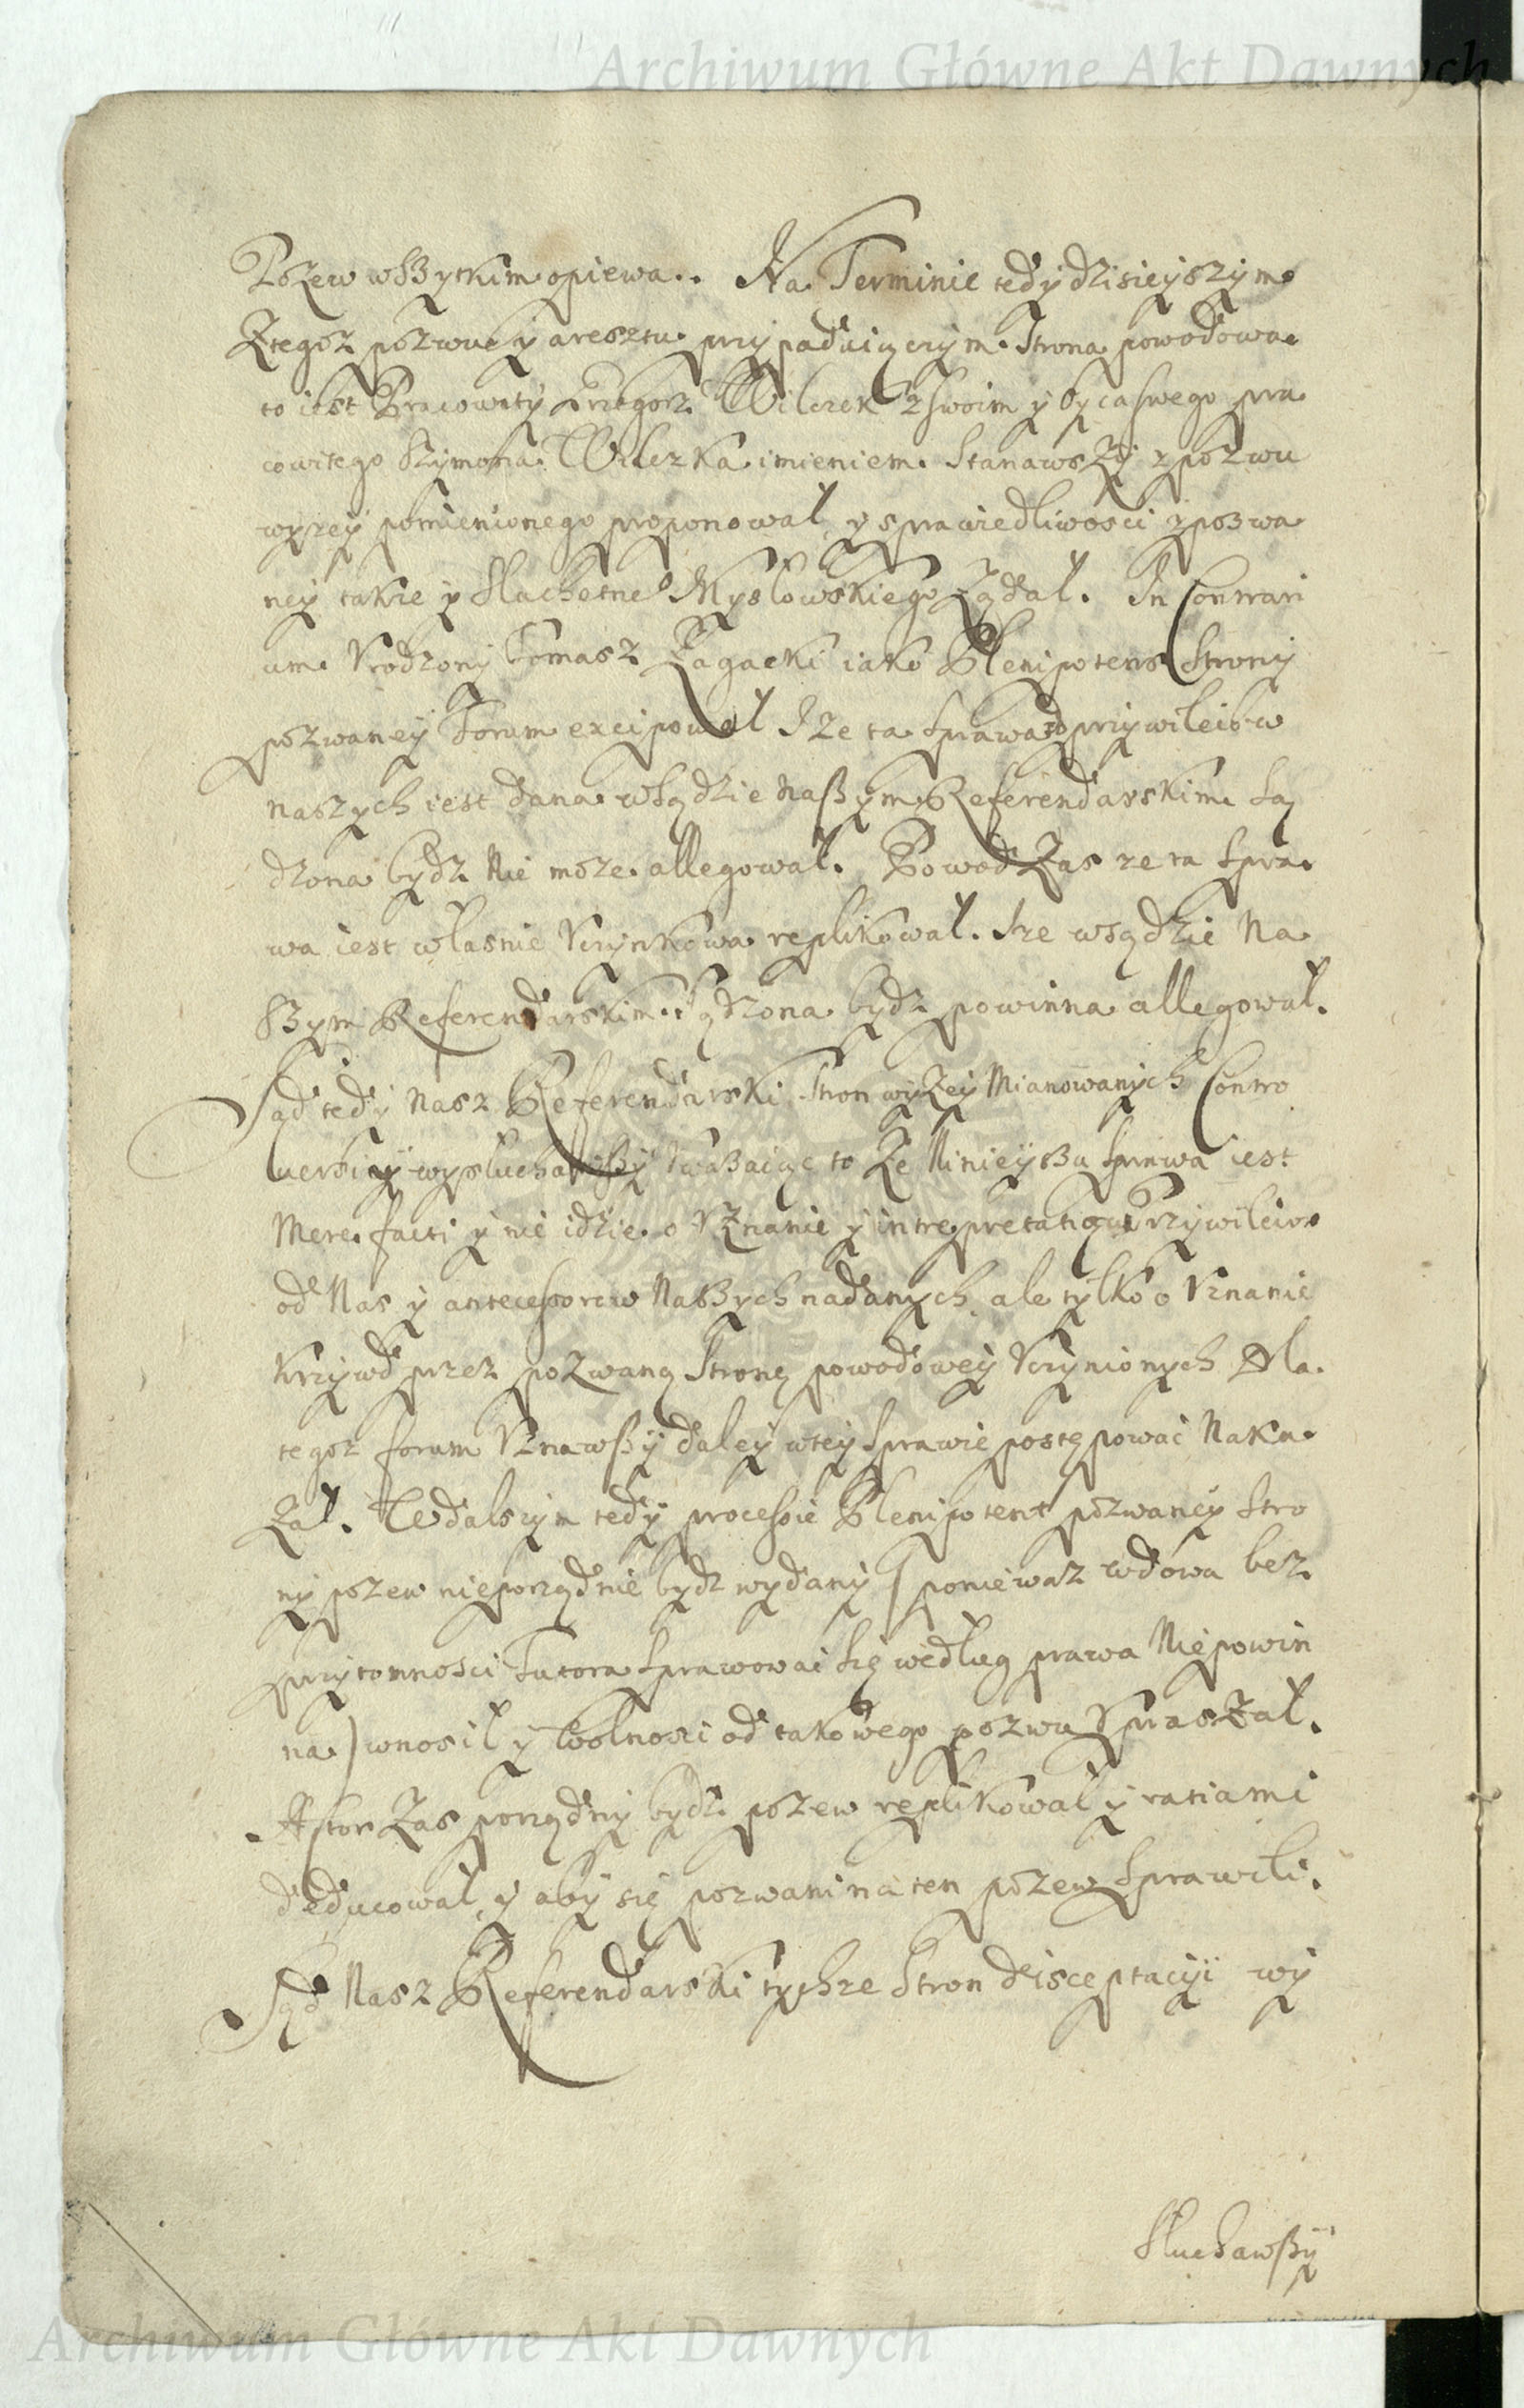 Archiwum Główne Akt Dawnych
Pozew wszytkim opiewa. Na Terminie tedy dzisieyszym
Z tegoz pozwu y aresztu przypaduiącym. Strona powodowa
to iest Pracowity Grzegorz Wilczek z swoim y oyca swego pra
cowitego Szymona Wilczka imieniem. Stanawszy z pozwu
wyzey pomienionego proponował, y sprawiedliwosci z pozwa
ney takze y Slachetne° Mysłowskiego Ządał. In Contrari
um Vrodzony Tomasz Zagacki iako Plenipotens Strony
pozwaney Forum excipował Ize ta Sprawa od przywileiow
naszych iest dana w Sądzie naszym Referendarskim Są
dzona bydz Nie moze allegował. Powod Zas ze ta Spra
wa iest własnie Vczynkowa replikował. Ize w sądzie Na
szym Referendarskim Sądzona bydz powinna allegował.
Sąd tedy Nasz Referendarski Stron wyzey Mianowanych Contro
uersiy wysłuchawszy Uwazaiąc to Ze Ninieysza Sprawa iest
Mere facti y nie idzie o Vznanie y intrepretatią Przywileiow
od Nas y antecessorow Naszych nadanych, ale tylko o Vznanie
Krzywd przez pozwaną Stronę powodowey Vczynionych Dla
tegoz forum Vznawszy daley w tey Sprawie postępowac Naka
Zał. W dalszym tedy processie Plenipotent pozwaney Stro
ny pozew nieporządnie bydz wydany (poniewaz wdowa bez
przytomnosci Tutora Sprawowac Się według prawa Nie powin
na) wnosił y Wolnosci od takowego pozwu Vpraszał.
Aktor Zas porządny bydz pozew replikował y ratiami
deducował, y aby się pozwani na ten pozew Sprawili.
Sąd Nasz Referendarski tychze Stron disceptacyi wy
Słuchawszy
Archiwum Główne Akt Dawnych